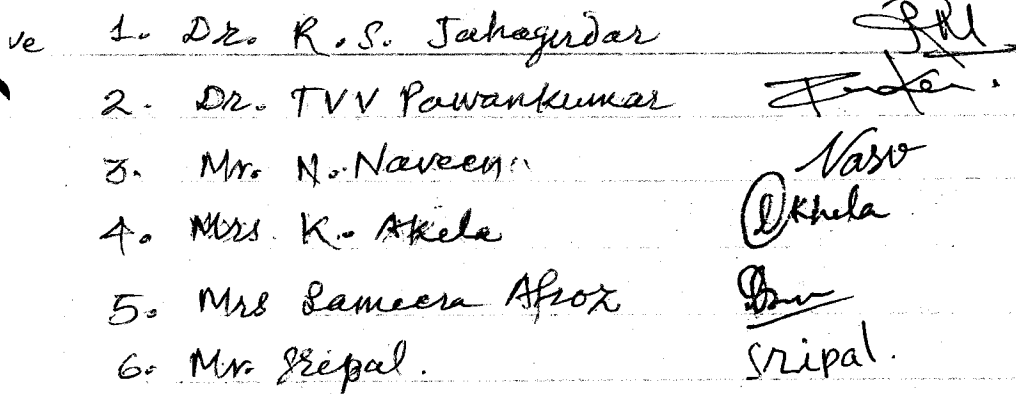 ve 1. Dr. R.S. Jahagirdar
2. Dr. TVV Pawankumar
3. Mr. N. Naveen Nasv
4. Mrs. K. Akela @khela
5. Mrs Sameera Afroz
6. Mr. Sripal. Sripal.